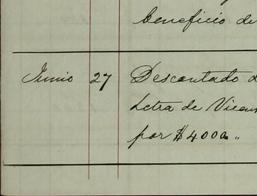 beneficio de
Junio 27 Descontado
Letra de Vicen
por $ 4000„